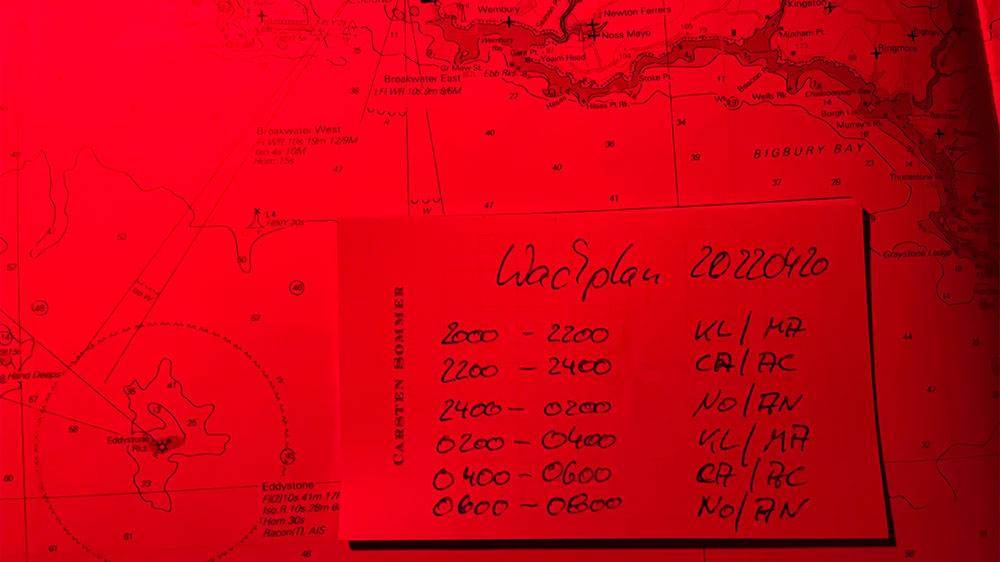 Wembury
Newton Ferrers
Noss Mayo
Kingston
Wembury Bay
Gara Pt.
Yealm Head
Gr Mew St.
Ebb Rks.
Stoke Pt.
Hilsea Pt Rk.
Beacon Pt.
Wells Rk.
Muxham Pt.
Ringmore
Bigbury
Challaborough Bay
Burgh I.
Murray's Rk.
BIGBURY BAY
Thurlestone
Greystone Ledge
Breakwater East
L Fl WR 10s 9m 8/6M
Breakwater West
Fl WR 10s 19m 12/9M
Iso.4s 10M
Horn 15s
L4
Fl(5)Y 20s
Iso.W
Hand Deeps
Eddystone
Rks
Eddystone
Fl(2)10s 41m 17
Iso.R.10s 28m 8
Horn 30s
Racon(T), AIS
CARSTEN SOMMER
Wachplan 20220420
2000 - 2200 KL/MA
2200 - 2400 CA/AC
2400 - 0200 NO/AN
0200 - 0400 KL/MA
0400 - 0600 CA/AC
0600 - 0800 NO/AN